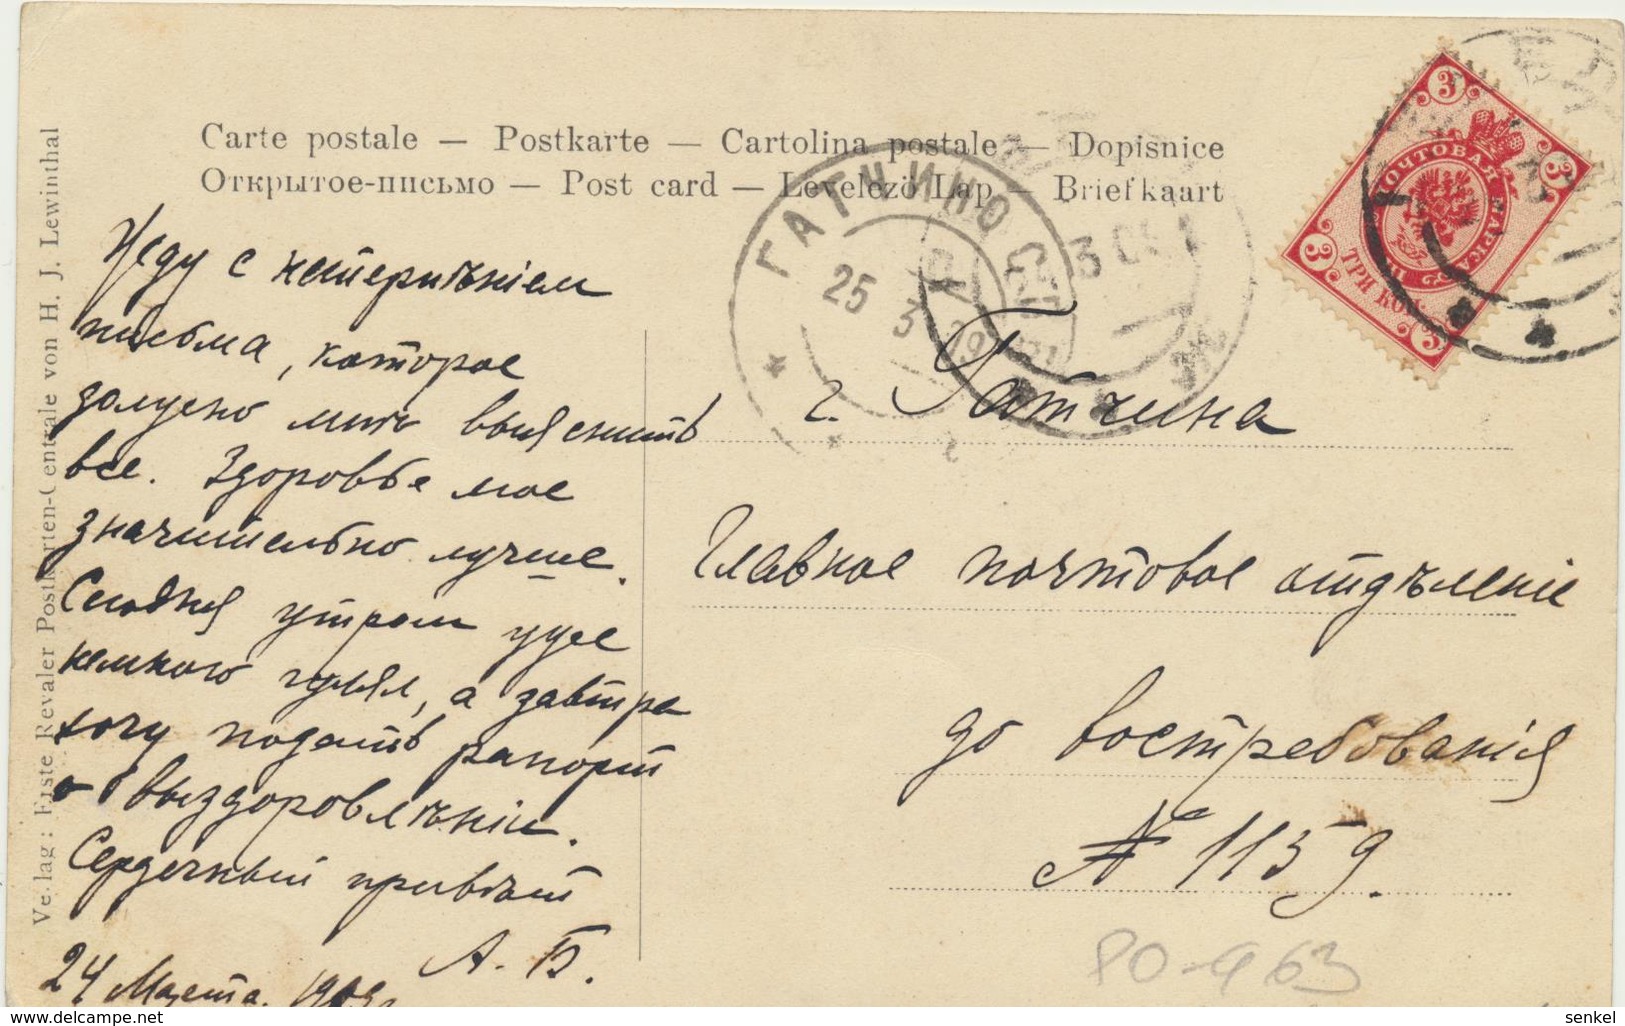 Carte postale — Postkarte — Cartolina postale — Dopisnice
Открытое-письмо — Post card — Levelezö Lap — Briefkaart
Verlag: Erste Revaler Postkarten-Centrale von H. J. Lewinthal
Жду с нетерпѣніем
письма, которое
должно мнѣ выяснить
все. Здоровье мое
значительно лучше.
Сегодня утром уже
немного гулял, а завтра
хочу подать рапорт
о выздоровленіи.
Сердечный привѣт
А. Б.
24 Марта
г. Гатчина
Главное почтовое отдѣленіе
до востребованія
№ 1159.
ГАТЧИНО
25 3 19
ПОЧТОВАЯ МАРКА
ТРИ КОП.
3
3
3
3
PO-963
delcampe.net
senkel